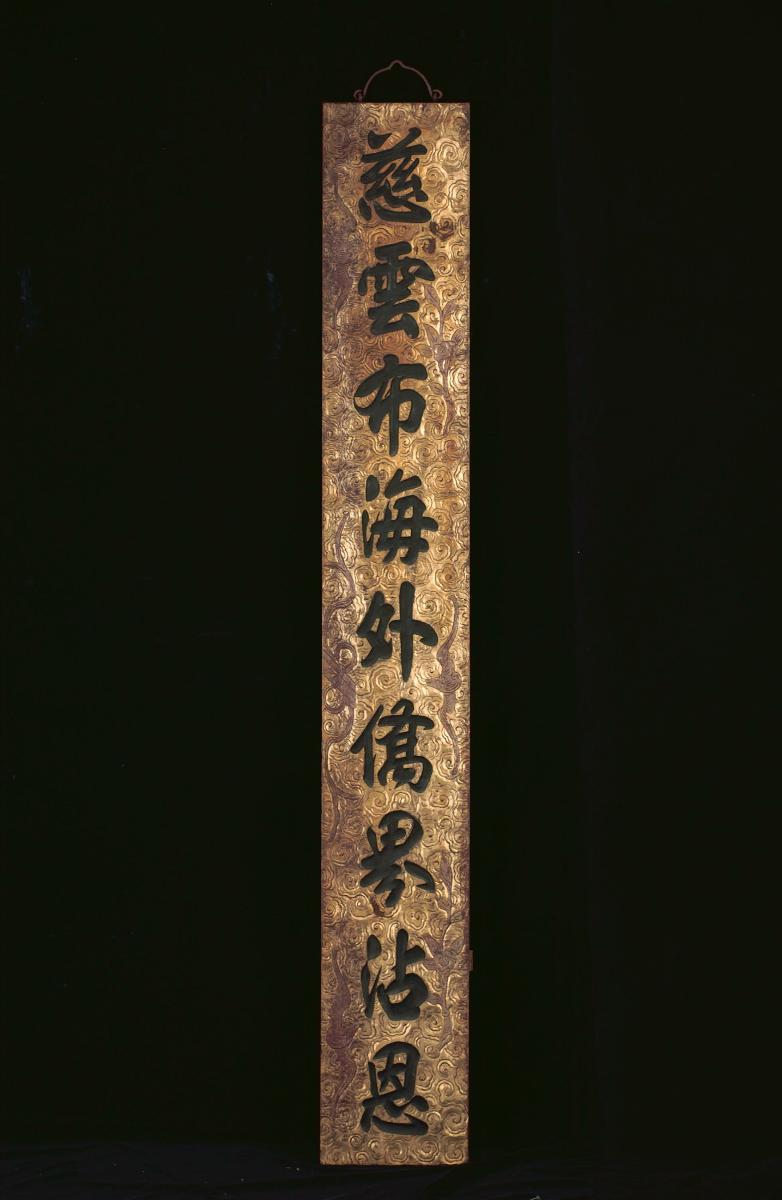 慈雲布海外僑界沾恩